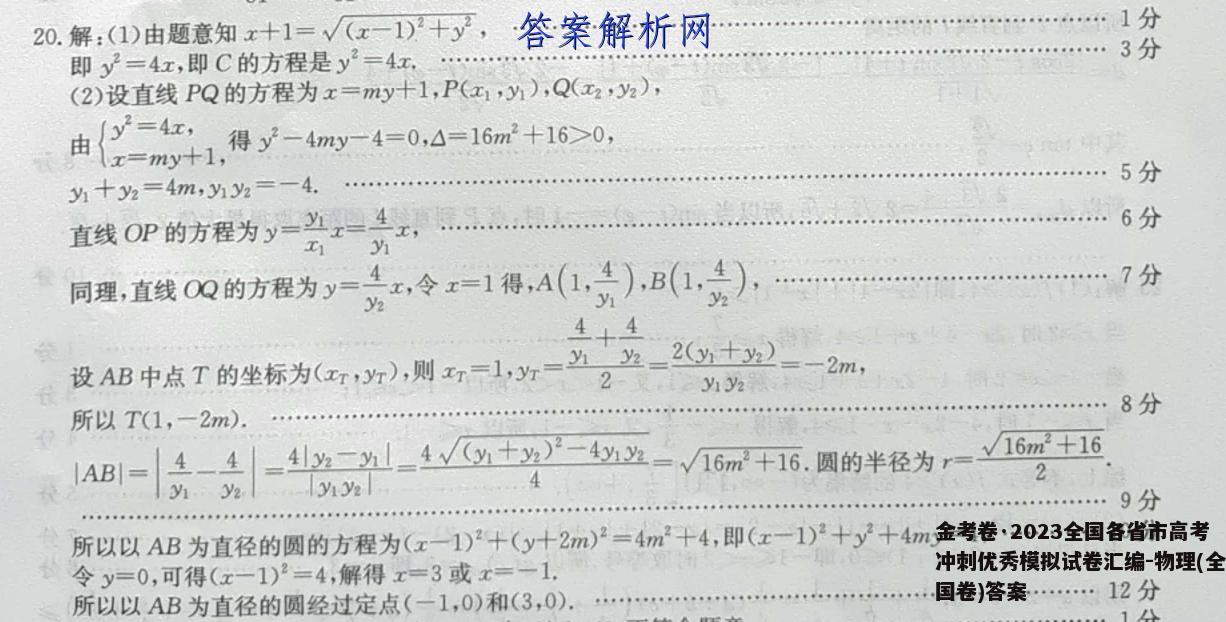 20. 解:(1)由题意知 x+1=√((x−1)²+y²), …… 1分
答案解析网
即 y²=4x,即 C 的方程是 y²=4x. …… 3分
(2)设直线 PQ 的方程为 x=my+1,P(x₁,y₁),Q(x₂,y₂),
由{y²=4x, x=my+1, 得 y²−4my−4=0,Δ=16m²+16>0,
y₁+y₂=4m,y₁y₂=−4. …… 5分
直线 OP 的方程为 y=y₁/x₁ x=4/y₁ x, …… 6分
同理,直线 OQ 的方程为 y=4/y₂ x,令 x=1 得,A(1,4/y₁),B(1,4/y₂), …… 7分
设 AB 中点 T 的坐标为(x_T,y_T),则 x_T=1,y_T=(4/y₁+4/y₂)/2=2(y₁+y₂)/y₁y₂=−2m,
所以 T(1,−2m). …… 8分
|AB|=|4/y₁−4/y₂|=4|y₂−y₁|/|y₁y₂|=4√((y₁+y₂)²−4y₁y₂)/4=√(16m²+16). 圆的半径为 r=√(16m²+16)/2.
…… 9分
所以以 AB 为直径的圆的方程为(x−1)²+(y+2m)²=4m²+4,即(x−1)²+y²+4my
令 y=0,可得(x−1)²=4,解得 x=3 或 x=−1.
所以以 AB 为直径的圆经过定点(−1,0)和(3,0). …… 12分
金考卷·2023全国各省市高考
冲刺优秀模拟试卷汇编-物理(全
国卷)答案